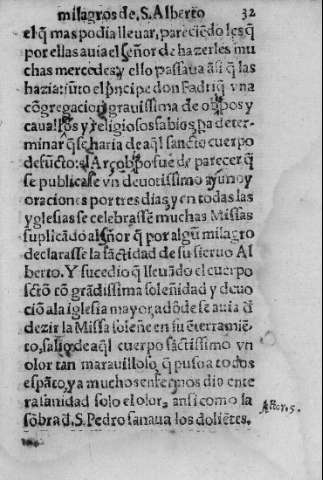 milagros de. S. Alberto 32
el q̃ mas podia lleuar, pareciẽdo les q̃
por ellas auia el señor de hazerles mu
chas mercedes: y ello passaua ãsi q̃ las
hazia: iũto el p̃ncipe don Fadriq̃ vna
cõgregacion grauissima de obp̃os y
caualls̃os y religiosos sabios, p̃a deter-
minar q̃ se haria de aq̃l sancto cuerpo
defũcto: el Arçobp̃o fue de parecer q̃
se publicasse vn deuotissimo ayũno y
oraciones por tres dias, y en todas las
yglesias se celebrassẽ muchas Missas
suplicãdo al señor q̃ por algũ milagro
declarasse la sãctidad de su sieruo Al
berto. Y sucedio q̃ lleuãdo el cuerpo
sctõ cõ grãdissima soleñidad y deuo
ciõ a la iglesia mayor, adõde se auia đ
dezir la Missa soleñe en su ẽterramiẽ-
to, salio de aq̃l cuerpo sãctissimo vn
olor tan marauilloso q̃ puso a todos
espãto, y a muchos enfermos dio ente
ra sanidad solo el olor, ansi como la
sõbra đ. S. Pedro sanaua los doliẽtes.
Actor. 5.